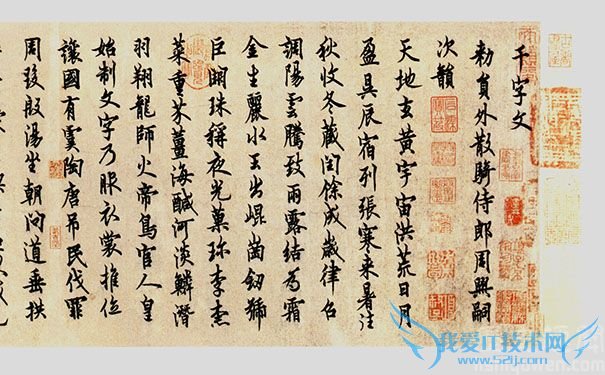 千字文
勑員外散騎侍郎周興嗣
次韻
天地玄黃宇宙洪荒日月
盈昃辰宿列張寒來暑往
秋收冬藏閏餘成歲律召
調陽雲騰致雨露結為霜
金生麗水玉出崐崗劒號
巨闕珠稱夜光菓珍李柰
菜重芥薑海醎河淡鱗潛
羽翔龍師火帝鳥官人皇
始制文字乃服衣裳推位
讓國有虞陶唐吊民伐罪
周發殷湯坐朝問道垂拱
我爱IT技术网
www.52ij.com